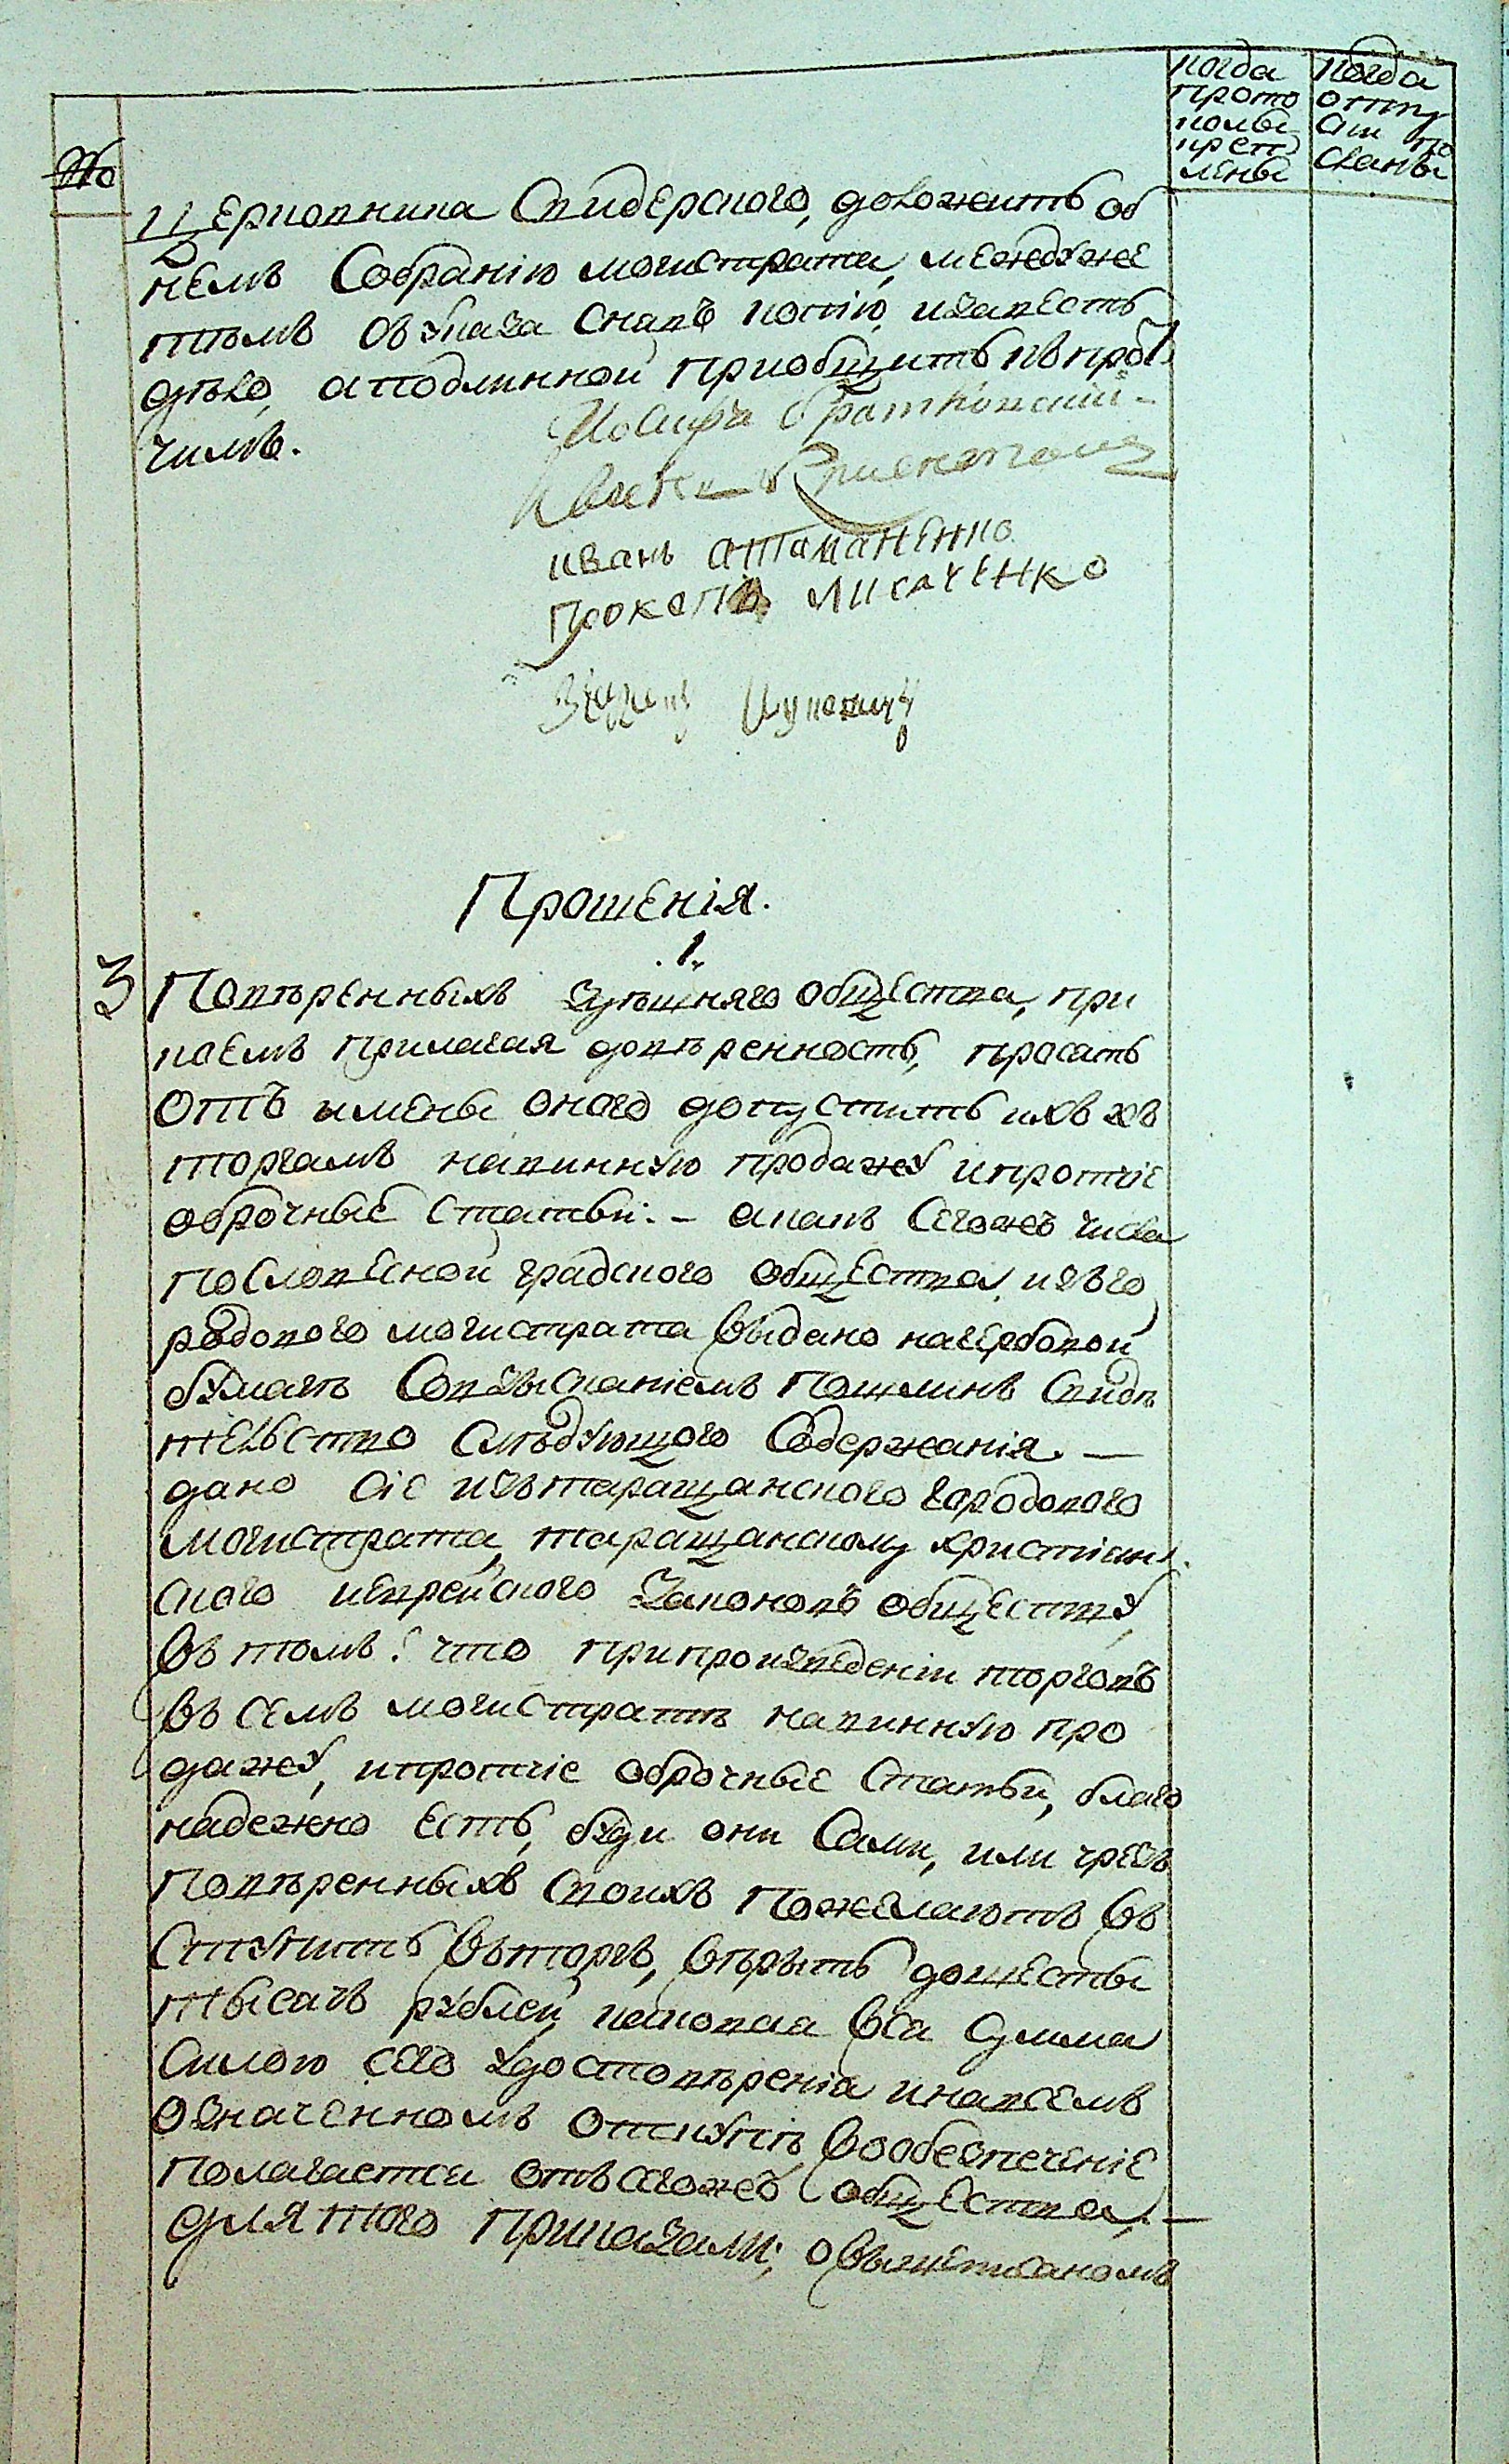 когда
прото
колы
крѣп
лены
когда
отпу
ски по
сланы
№
церковника Свидерского, доложить об
немъ Собранію магистрата, междуже
тѣмъ съ указа снявъ копію, изавесть
дѣло, аподлинной приобщить къ про
чимъ.
иванъ атаманенко
Прокопъ лисаченко
Прошенія.
1.
3
Повѣренныхъ здѣшняго общества, при
коемъ прилагая довѣренность, просятъ
отъ имены оного допустить ихъ къ
торгамъ навинную продажу ипротчіе
оброчные статьи. – акакъ Сегожъ числа
пословесной градского общества, изъго
родового магистрата выдано нагербовой
бумагѣ Совзысканіемъ пошлинъ свидѣ
тельство слѣдующого Содержанія. —
дано сіе изътаращанского городового
магистрата, таращанскому христіан
ского иеврейского Законовъ обществу,
въ томъ: что припроизведеніи торговъ
въ семъ магистратѣ навинную про
дажу, ипротчіе оброчные статьи, благо
надежно есть, буди они Сами, или чрезъ
повѣренныхъ своихъ пожелаютъ въ
ступить въторгъ, вѣрить дошесты
тысячъ рублей, каковая вся сумма
силою сего удостовѣренія инавсемъ
означенномъ откупѣ, вообезпеченіе
полагается отъ сегожъ общества, —
длятого приказали; овышеписаномъ